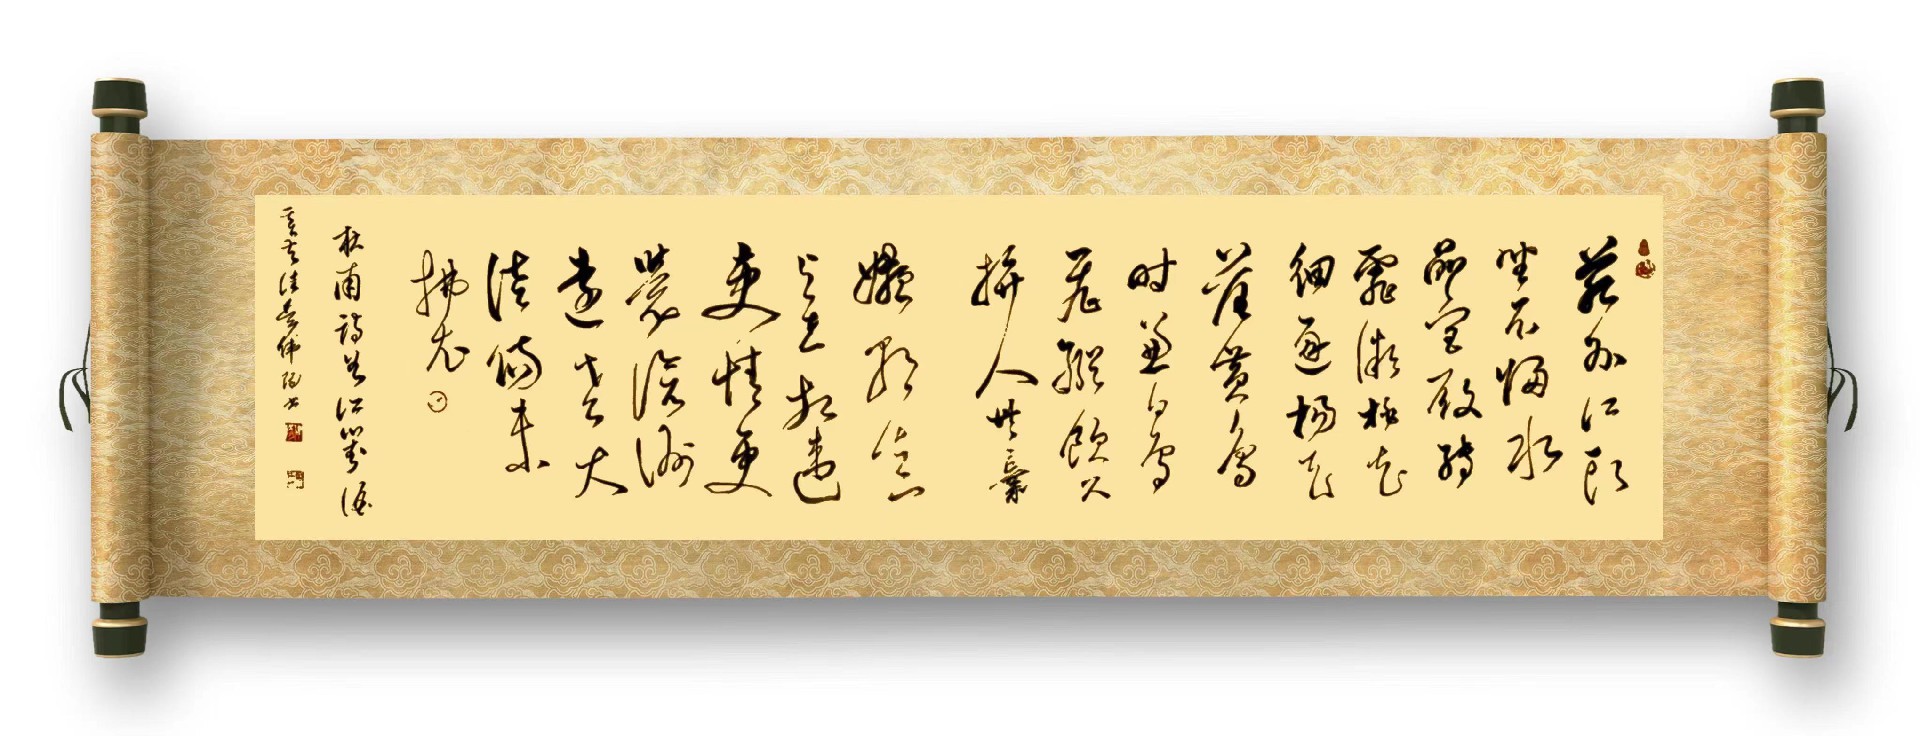 苑外江頭
坐不歸水
晶宮殿轉
霏微桃花
細逐楊花
落黃鳥
时兼白鳥
飛縱飲久
拚人共棄
嬾朝真
与世相違
吏情更
覺滄洲
遠老大
徒傷未
拂衣
杜甫詩曲江對酒